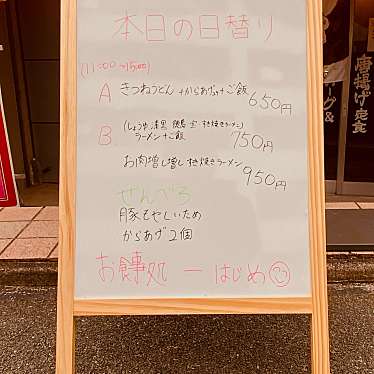 本日の日替り
(11:00〜15:00)
A きつねうどん +からあげ+ご飯 650円
B (しょうゆ 漆黒 徳島 宝 すき焼きラーメン)
ラーメン+ご飯 750円
お肉増し増し すき焼きラーメン 950円
せんべろ
豚もやしいため
からあげ2個
お食事処 一 はじめ
唐揚げ定食